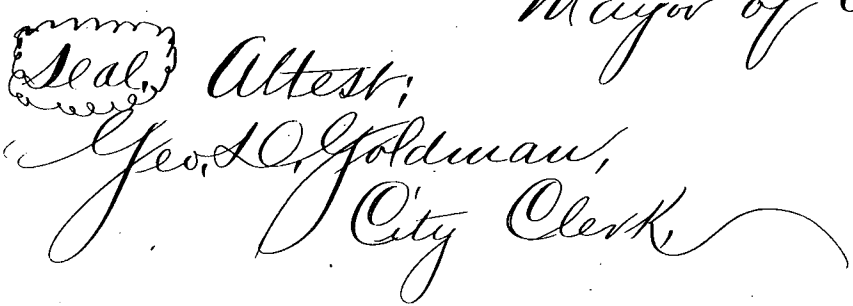 Mayor of
Seal. Attest:
Geo. D. Goldman,
City Clerk.